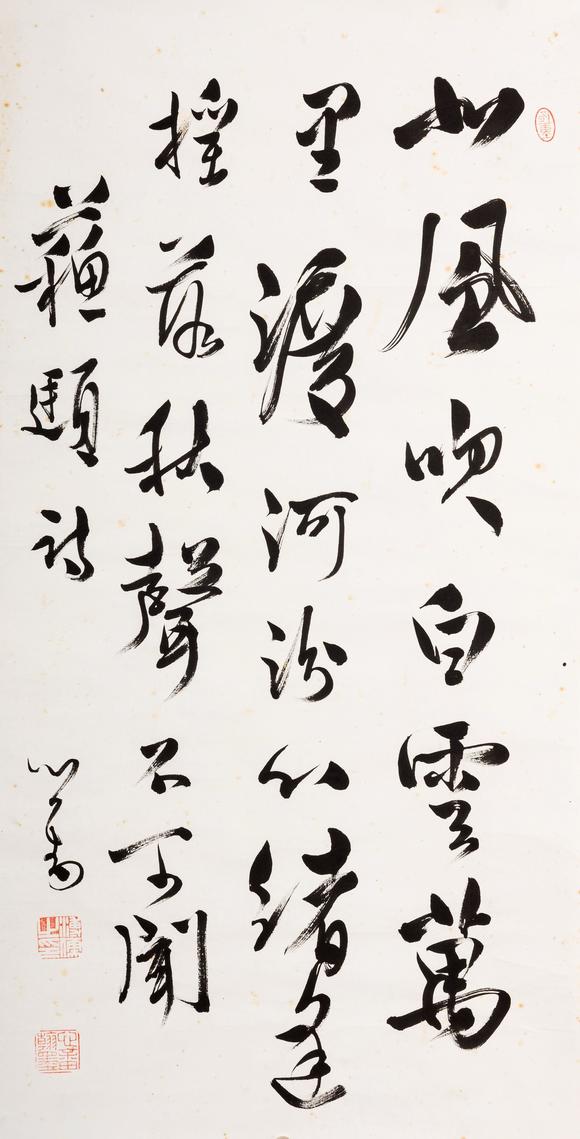 北風吹白雲萬
里渡河汾心緒逢
搖落秋聲不可聞
蘇頲詩
心畬
溥儒之印